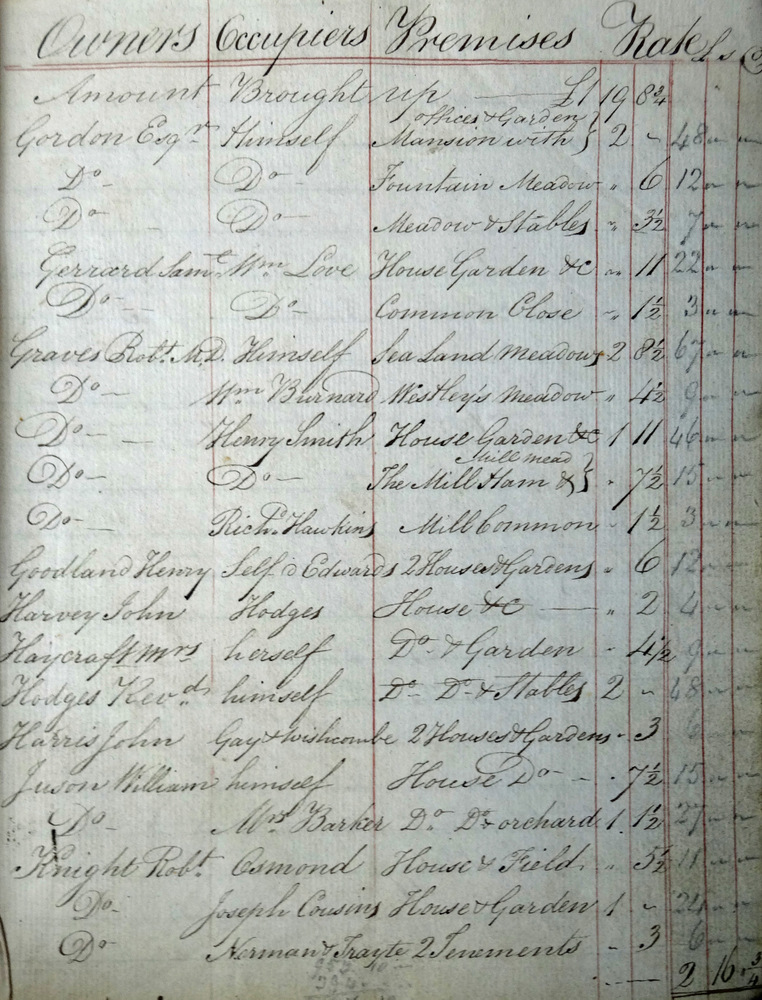 Owners Occupiers Premises Rate £ s
Amount Brought up — £1 19 8¾
offices & Garden
Gordon Esqr Himself Mansion with } 2 - 48 - -
Do Do Fountain Meadow " 6 12 - -
Do Do Meadow & Stables " 3½ 7 - -
Gerrard Saml Wm Love House Garden &c " 11 22 - -
Do Do Common Close " 1½ 3 - -
Graves Robt M.D. Himself Sea Land Meadows 2 8½ 67 - -
Do Wm Burnard Westley's Meadow " 4½ 9 - -
Do Henry Smith House Garden &c 1 11 46 - -
Mill mead
Do Do The Mill Ham & } " 7½ 15 - -
Do Richd Hawkins Mill Common " 1½ 3 - -
Goodland Henry Self & Edwards 2 Houses & Gardens " 6 12 - -
Harvey John Hodges House &c — " 2 4 - -
Haycraft Mrs herself Do & Garden - 4½ 9 - -
Hodges Revd himself Do Do & Stables 2 - 48 - -
Harris John Gay & Wishcombe 2 Houses & Gardens - 3 6 - -
Juson William himself House Do - - 7½ 15 - -
Do Mrs Barker Do Do & orchard 1 1½ 27 - -
Knight Robt Osmond House & Field " 5½ 11 - -
Do Joseph Cousins House & Garden 1 - 24 - -
Do Norman & Trayte 2 Tenements - 3 6 - -
2 16 - ¾